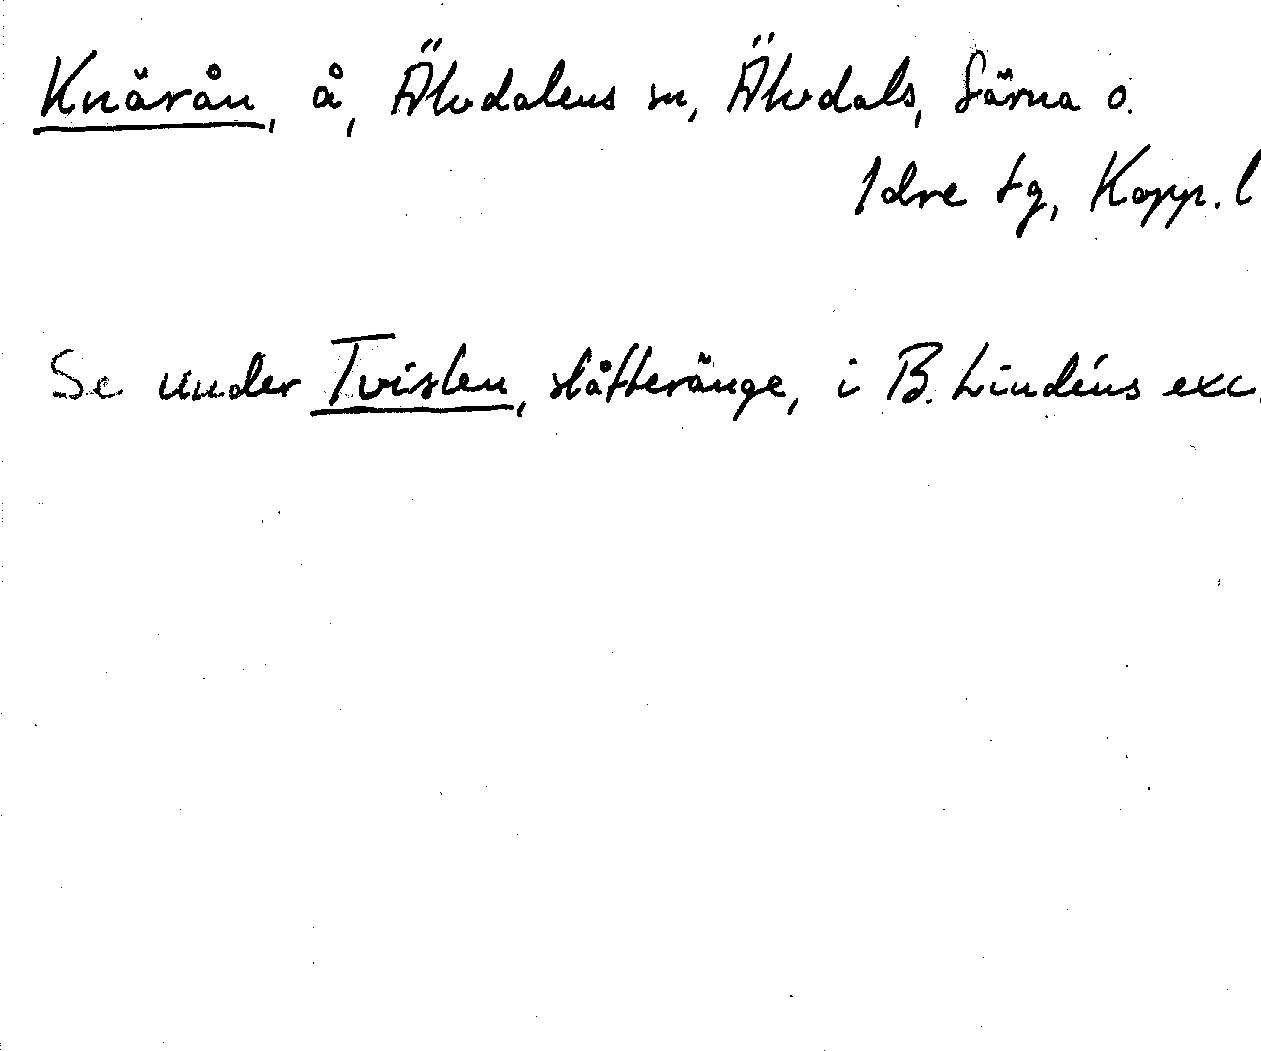 Knärån, å, Älvdalens sn, Älvdals, Särna o.
Idre tg, Kopp. l
Se under Tvisten, slåtteränge, i B. Lindéns exc.